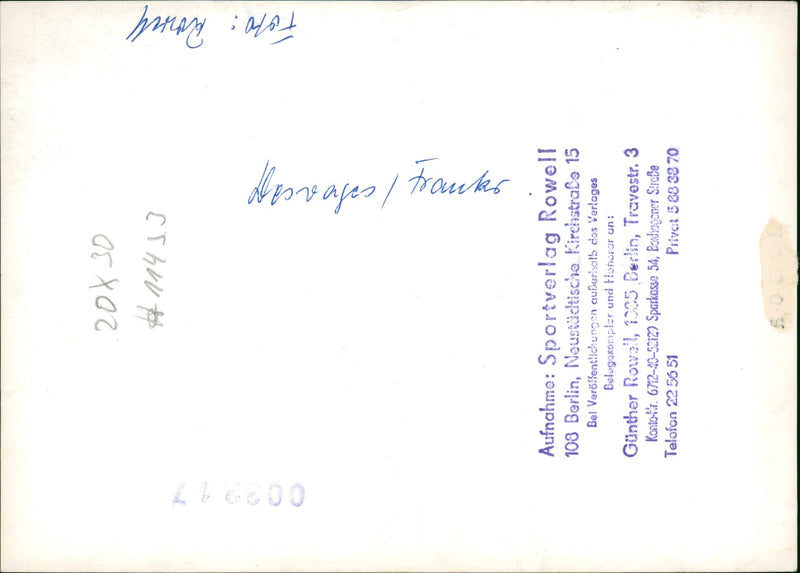 Foto: Rowell
Desvages / Franke
20X30
# 11453
Aufnahme: Sportverlag Rowell
108 Berlin, Neustädtische Kirchstraße 15
Bei Veröffentlichungen außerhalb des Verlages
Belegexemplar und Honorar an:
Günther Rowell, 1035 Berlin, Travestr. 3
Konto-Nr. 6712-40-52129 Sparkasse 54, Boxhagener Straße
Telefon 22 56 51 Privat 5 88 38 70